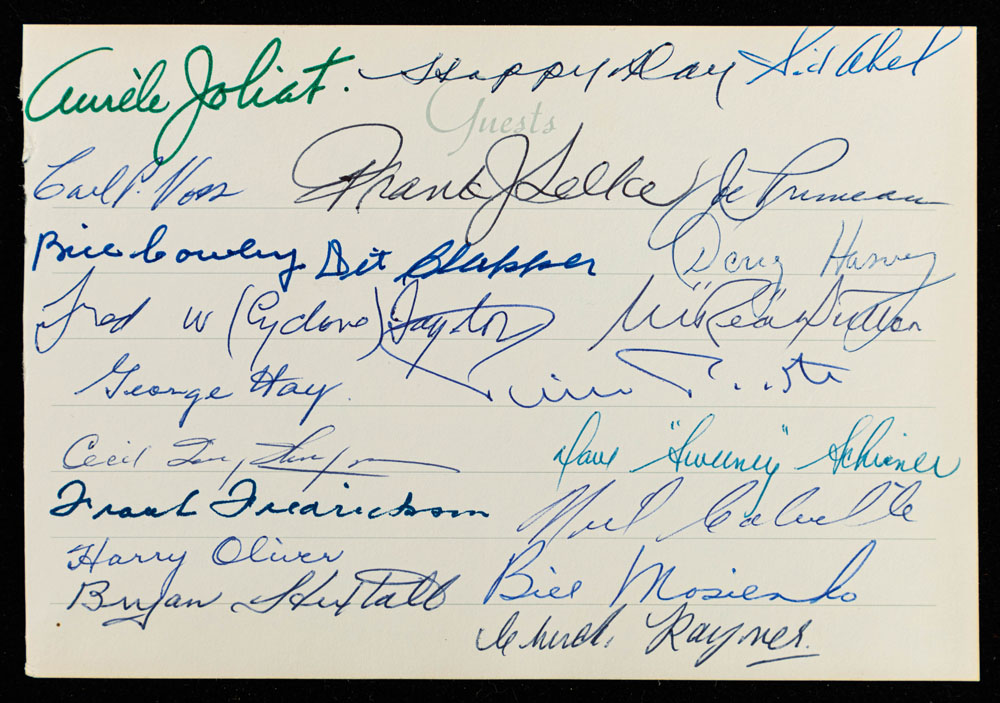 Aurèle Joliat. Happy Day Sid Abel
Guests
Carl P. Voss Frank J Selke Joe Primeau
Bill Cowley Dit Clapper Doug Harvey
Fred W (Cyclone) Taylor "Red" Dutton
George Hay
Cecil Dave "Sweeney" Schriner
Frank Fredrickson Neil Colville
Harry Oliver
Bryan Hextall Bill Mosienko
Chuck Rayner.